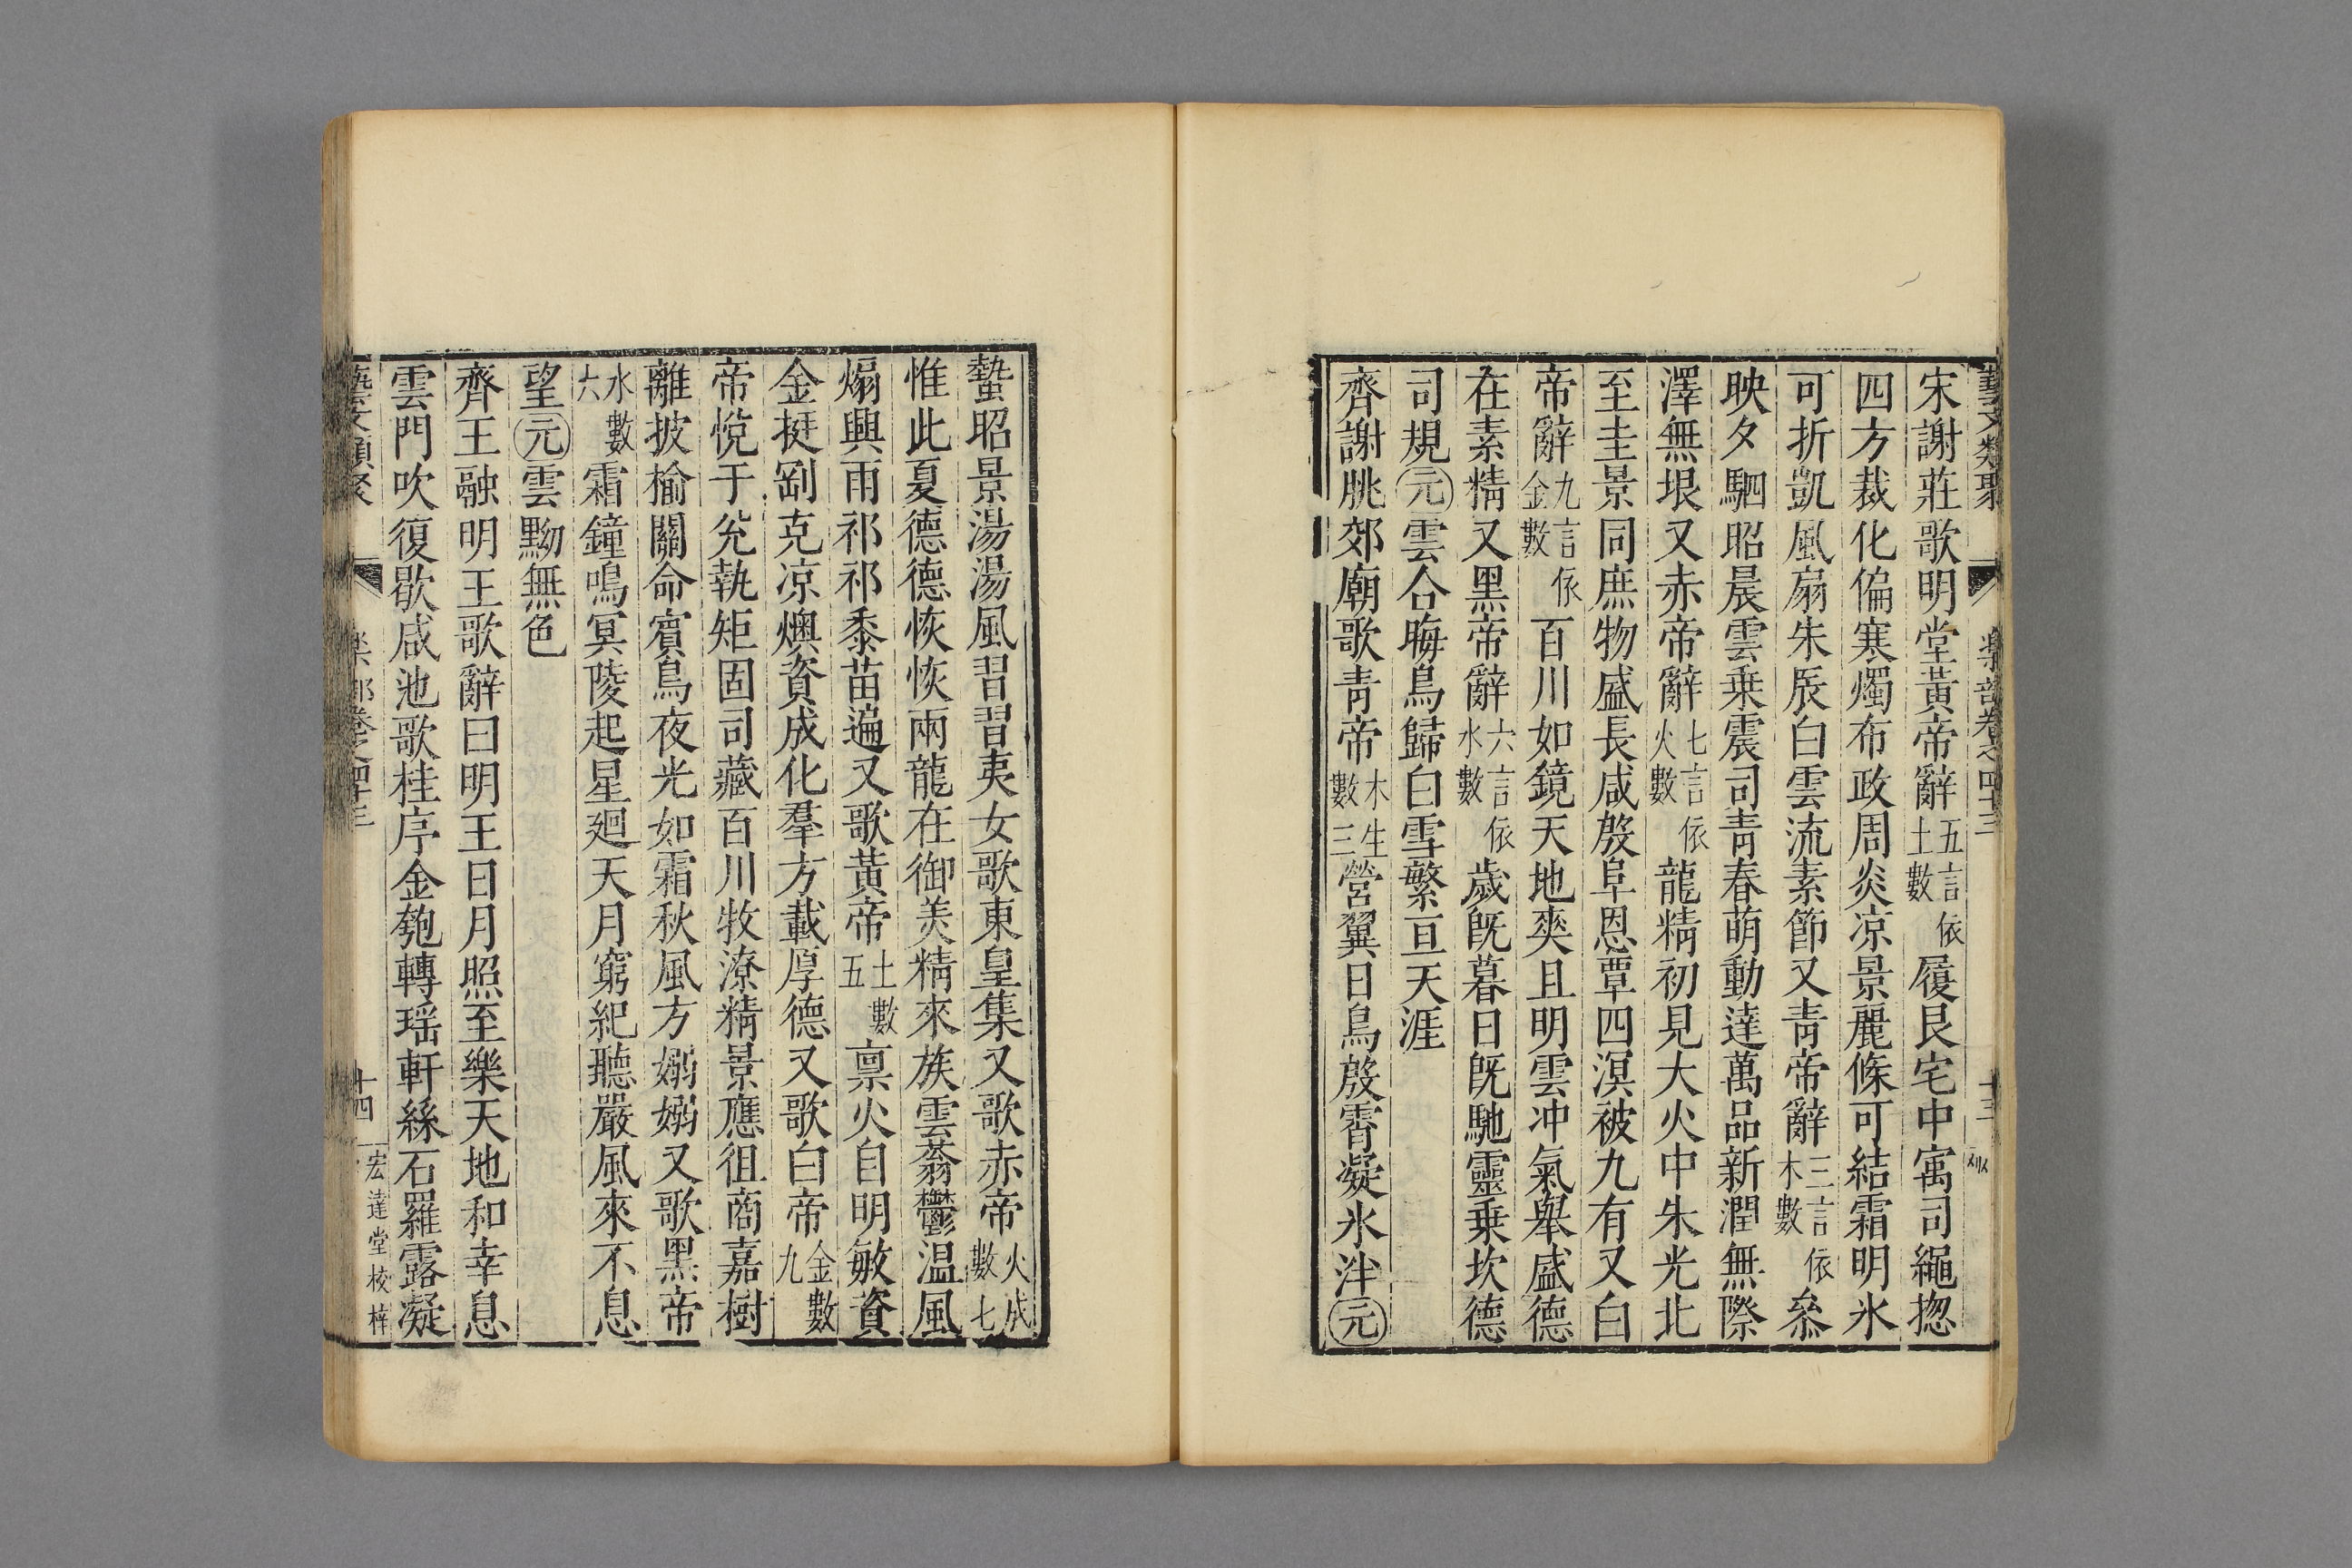 藝文類聚 樂部卷之四十三 十三
宋謝莊歌明堂黃帝辭五言依土數履艮宅中寓司繩揔
四方裁化徧寒燠布政周炎凉景麗條可結霜明氷
可折凱風扇朱辰白雲流素節又青帝辭三言依木數叅
映夕駟昭晨雲乗震司青春萌動達萬品新潤無際
澤無垠又赤帝辭七言依火數龍精初見大火中朱光北
至圭景同庶物盛長咸殷阜恩覃四溟被九有又白
帝辭九言依金數百川如鏡天地爽且明雲冲氣舉盛德
在素精又黑帝辭六言依水數歲旣暮日旣馳靈乗坎德
司規㊒元雲合晦鳥歸白雪繁亘天涯
齊謝朓郊廟歌青帝木生數三營翼日鳥殷霄凝氷泮元
蟄昭景湯湯風習習夷女歌東皇集又歌赤帝火成數七
惟此夏德德恢恢兩龍在御羙精來族雲蓊鬱温風
煽興雨祁祁黍苗遍又歌黃帝土數五禀火自明敏資
金挺剛克凉燠資成化羣方載厚德又歌白帝金數九
帝悅于兊執矩固司藏百川牧潦精景應徂商嘉樹
離披榆關命賓鳥夜光如霜秋風方嫋嫋又歌黑帝
水數六霜鐘鳴冥陵起星廻天月窮紀聽嚴風來不息
望元雲黝無色
齊王融明王歌辭曰明王日月照至樂天地和幸息
雲門吹復歇咸池歌桂序金匏轉瑶軒絲石羅露凝
藝文類聚 樂部卷之四十三 十四 宏達堂校梓